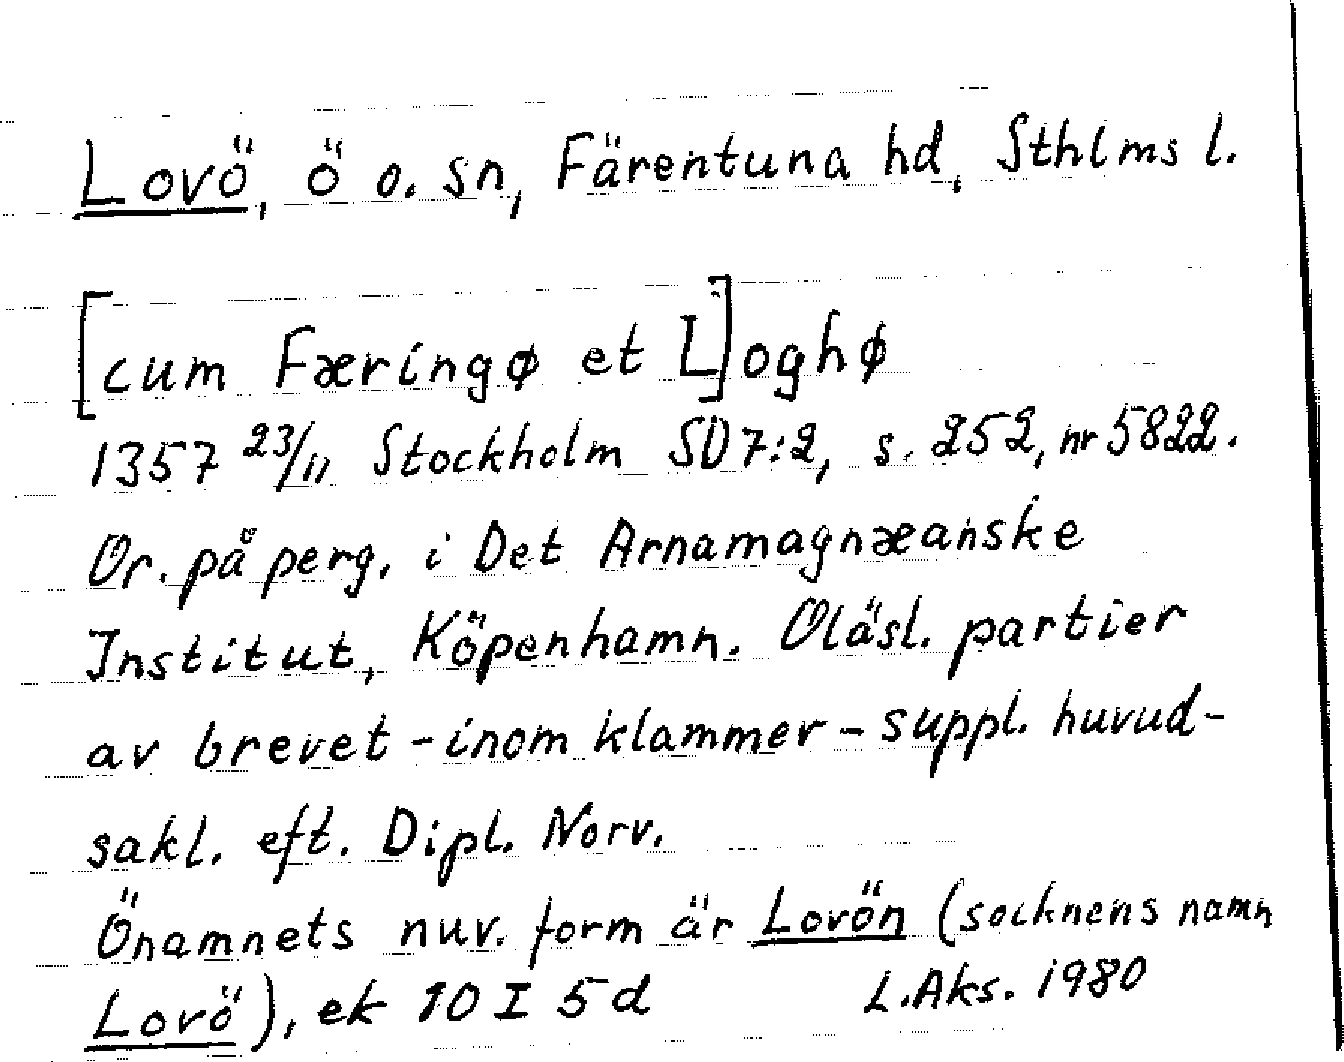 Lovö, ö o. sn, Färentuna hd, Sthlms l.
[cum Færingø et L]oghø
1357 23/11 Stockholm SD 7:2, s. 252, nr 5822.
Or. på perg. i Det Arnamagnæanske
Institut, Köpenhamn. Oläsl. partier
av brevet - inom klammer - suppl. huvud-
sakl. eft. Dipl. Norv.
Önamnets nuv. form är Lovön (socknens namn
Lovö), ek 10 I 5 d
L. Aks. 1980